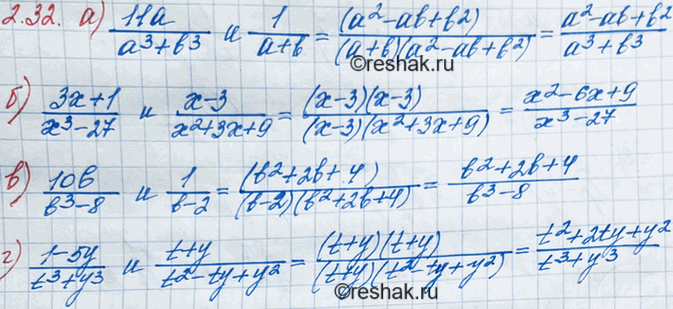 2.32. а) 11a/(a³+b³) и 1/(a+b) = (a²-ab+b²)/((a+b)(a²-ab+b²)) = (a²-ab+b²)/(a³+b³)
©reshak.ru
б) (3x+1)/(x³-27) и (x-3)/(x²+3x+9) = (x-3)(x-3)/((x-3)(x²+3x+9)) = (x²-6x+9)/(x³-27)
в) 10b/(b³-8) и 1/(b-2) = (b²+2b+4)/((b-2)(b²+2b+4)) = (b²+2b+4)/(b³-8)
г) (1-5y)/(t³+y³) и (t+y)/(t²-ty+y²) = (t+y)(t+y)/((t+y)(t²-ty+y²)) = (t²+2ty+y²)/(t³+y³)
©reshak.ru